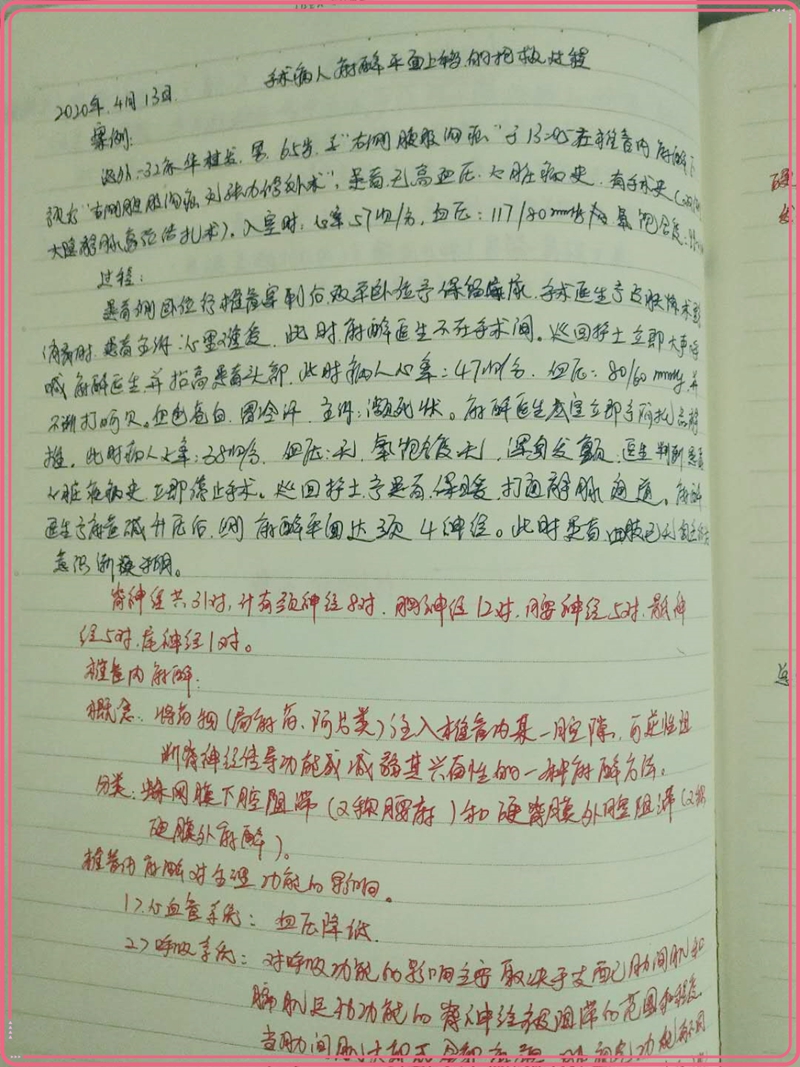 手术病人麻醉平面上移的抢救过程
2020年.4月13日.
案例:
男. 65岁. 因"右侧腹股沟疝"于13:45在椎管内麻醉下
"右侧腹股沟疝无张力修补术". 患者无高血压. 心脏病史. 有手术史
大隐静脉高位结扎术). 入室时: 心率57次/分, 血压: 117/80mmHg 氧饱合度:
过程:
患者侧卧位行椎管穿刺后, 改平卧位予保暖 手术医生予皮肤消毒
消毒时. 患者主诉: 心里难受. 此时. 麻醉医生不在手术间。巡回护士立即大声呼
喊麻醉医生并抬高患者头部. 此时病人心率: 47次/分. 血压: 80/60mmHg. 并
不断打呵欠. 面色苍白. 冒冷汗. 主诉: 濒死状。麻醉医生 立即予阿托品静
推. 此时病人心率: 38次/分. 血压: 无. 氧饱合度无, 浑身发颤. 医生判断患者
心脏 病史. 立即停止手术。巡回护士予患者.保暖. 打通静脉通道。麻醉
医生予麻黄碱升压后, 测麻醉平面达颈4神经。此时患者.四肢已无
意识渐模糊。
脊神经共31对, 计有颈神经8对. 胸神经12对. 腰神经5对. 骶神
经5对. 尾神经1对。
椎管内麻醉:
概念: 将药物(局麻药、阿片类)注入椎管内某一腔隙, 可逆性阻
断脊神经传导功能或减弱其兴奋性的一种麻醉方法。
分类: 蛛网膜下腔阻滞(又称腰麻)和硬脊膜外腔阻滞(又称
硬膜外麻醉)。
椎管内麻醉对生理功能的影响。
1>心血管系统: 血压降低.
2>呼吸系统: 对呼吸功能的影响主要取决于支配肋间肌和
膈肌运动功能的脊神经被阻滞的范围和程度
当肋间肌大部或全部麻痹